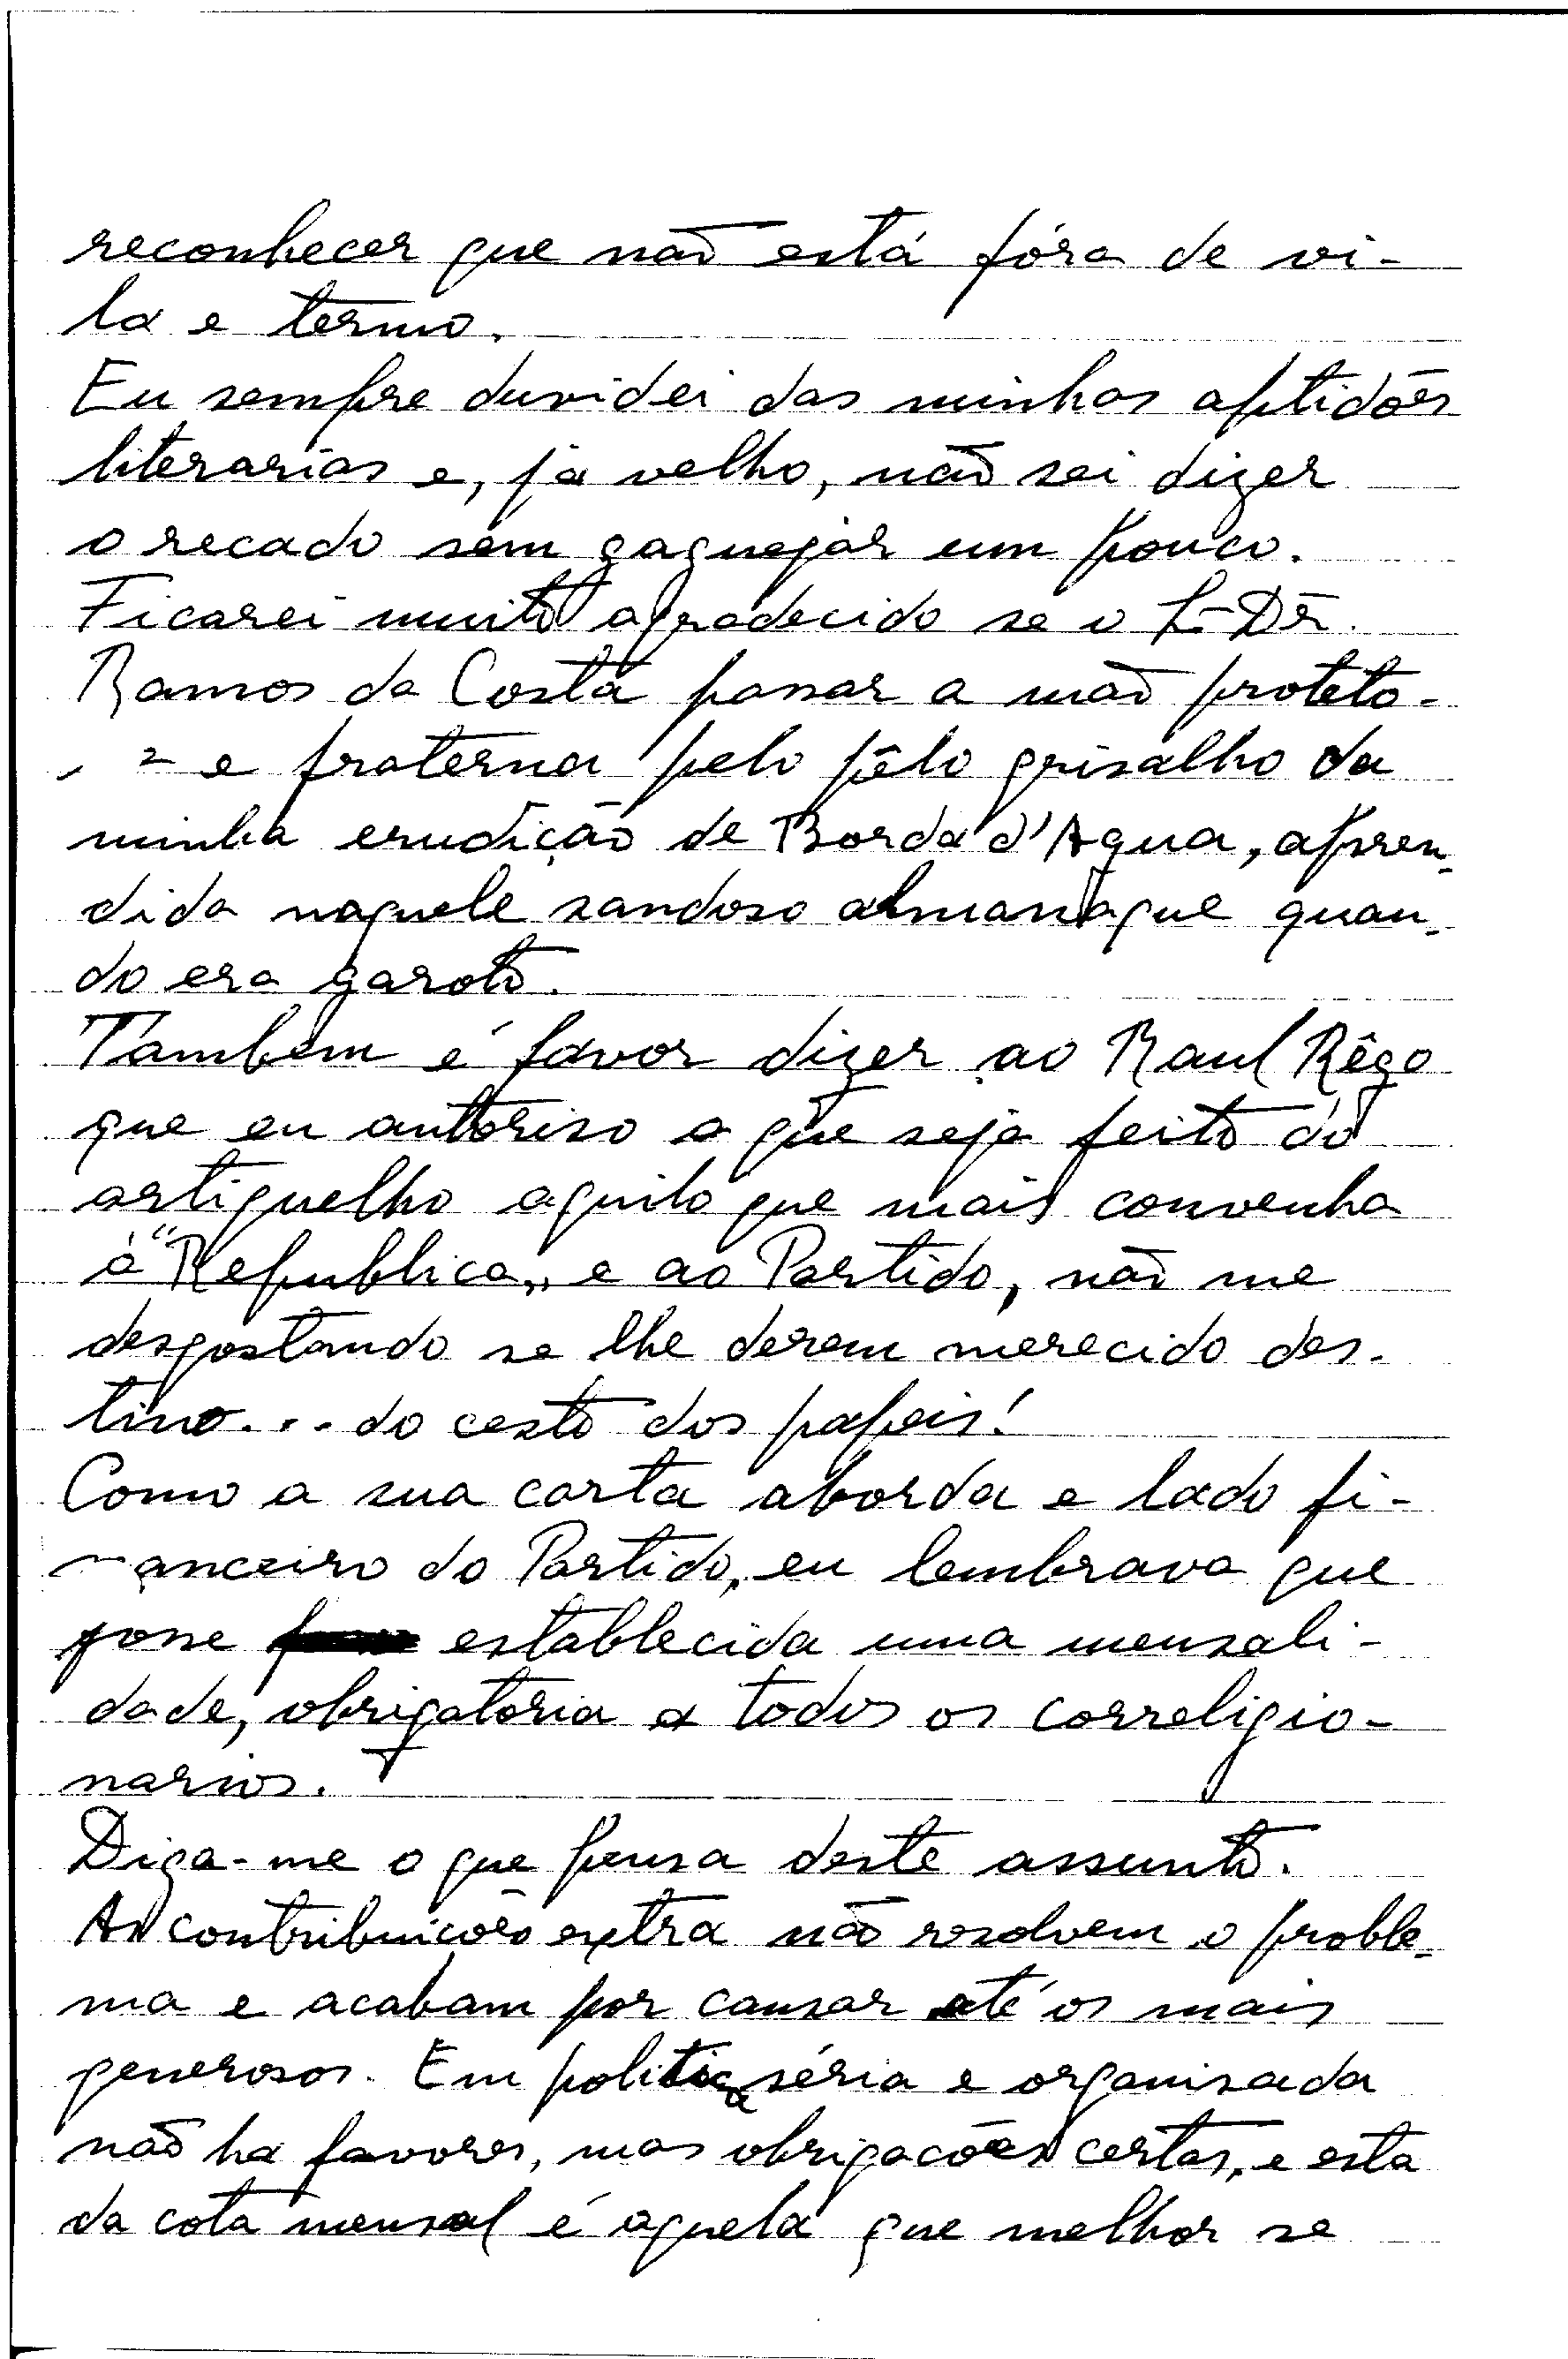 reconhecer que não está fóra de vi-
la e termo.
Eu sempre duvidei das minhas aptidões
literarias e, já velho, não sei dizer
o recado sem gaguejar um pouco.
Ficarei muito agradecido se o Dr.
Ramos da Costa passar a mão proteto-
e fraterna pelo pêlo grisalho da
minha erudição de Borda d'Agua, apren-
dida naquele saudoso almanaque quan-
do era garoto.
Tambem é favor dizer ao Raul Rêgo
que eu autoriso a que seja feito ao
artiguelho aquilo que mais convenha
á "Republica„ e ao Partido, não me
desgostando se lhe derem merecido des-
tino... do cesto dos papeis!
Como a sua carta aborda e lado fi-
anceiro do Partido, eu lembrava que
fosse establecida uma mensali-
dade, obrigatoria a todos os correligio-
narios.
Diga-me o que pensa deste assunto.
As contribuicões extra não resolvem o proble-
ma e acabam por cansar até os mais
generosos. Em politica séria e organisada
não ha favores, mas obrigacões certas, e esta
da cota mensal é aquela que melhor se